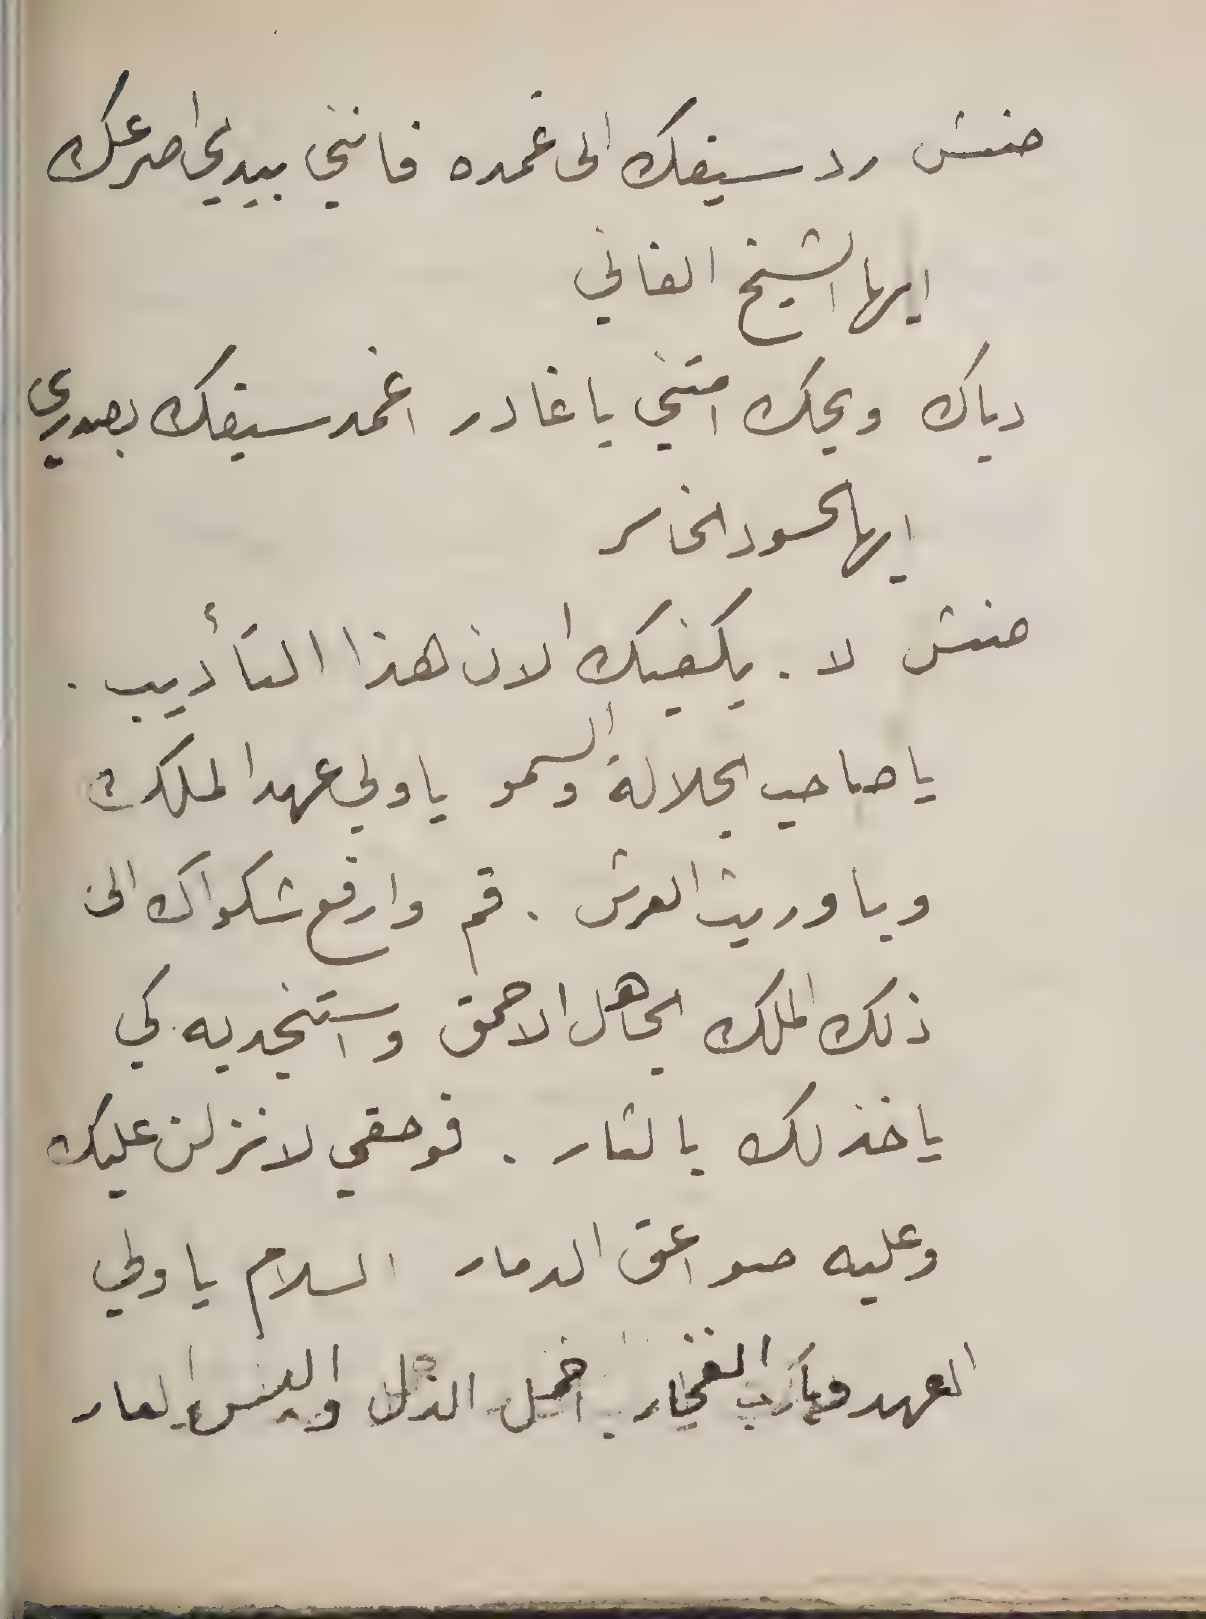 منتش رد سيفك الى غمده فانني بيدي اصرعك
ايها الشيخ الفاني
دياك ويحك امتني يا غادر اغمد سيفك بصدري
ايها الحسود الخاسر
منتش لا . يكفيك الان هذا التأديب .
يا صاحب الجلالة والسمو يا ولي عهد الملك
ويا وريث العرش . قم وارفع شكواك الى
ذلك الملك الجاهل الاحمق واستنجد به كي
ياخذ لك بالثار . فوحقي لانزلن عليك
وعليه صواعق الدمار السلام يا ولي
العهد ويا رب الفخار احمل الذل والبس العار